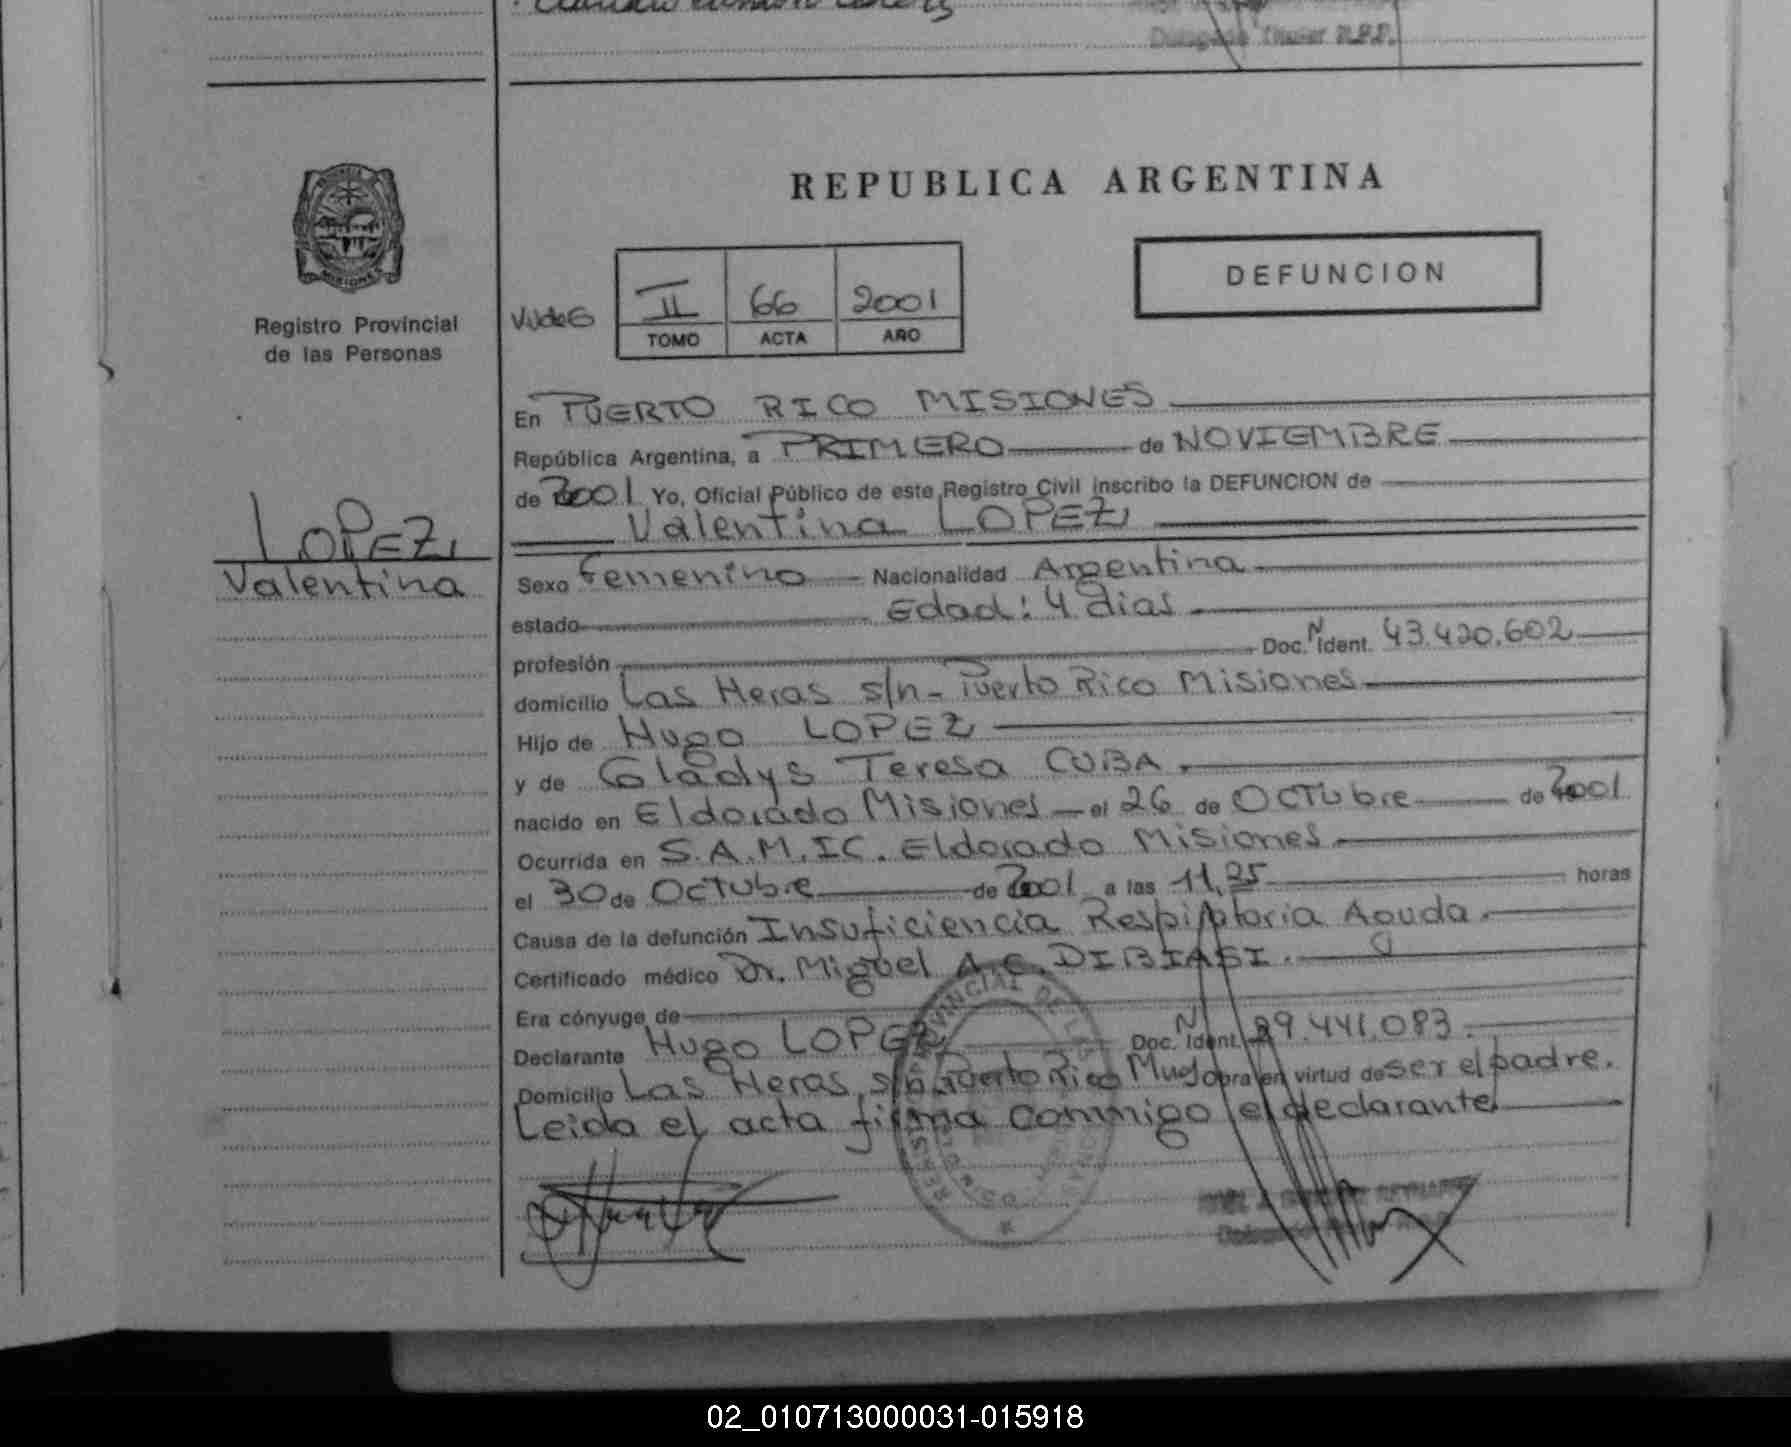 Titular R.P.P.
MISIONES
Registro Provincial
de las Personas
REPUBLICA ARGENTINA
DEFUNCION
II 66 2001
TOMO ACTA AÑO
En PUERTO RICO MISIONES
República Argentina, a PRIMERO de NOVIEMBRE
de 2001 Yo, Oficial Público de este Registro Civil inscribo la DEFUNCION de
Valentina LOPEZ
LOPEZ
Valentina
Sexo Femenino Nacionalidad Argentina
estado Edad: 4 dias
profesión Doc. N Ident. 43.420.602
domicilio Las Heras s/n - Puerto Rico Misiones
Hijo de Hugo LOPEZ
y de Gladys Teresa CUBA.
nacido en Eldorado Misiones el 26 de OCTubre de 2001
Ocurrida en S.A.M.IC. Eldorado Misiones
el 30 de OCTubre de 2001 a las 11,25 horas
Causa de la defunción Insuficiencia Respiratoria Aguda.
Certificado médico Dr. Miguel A.C. DIBIASI.
Era cónyuge de
Declarante Hugo LOPEZ Doc. N Ident. 29.441.083.
Domicilio Las Heras s/n Puerto Rico Mnes obra en virtud de ser el padre.
Leida el acta firma conmigo el declarante
02_010713000031-015918